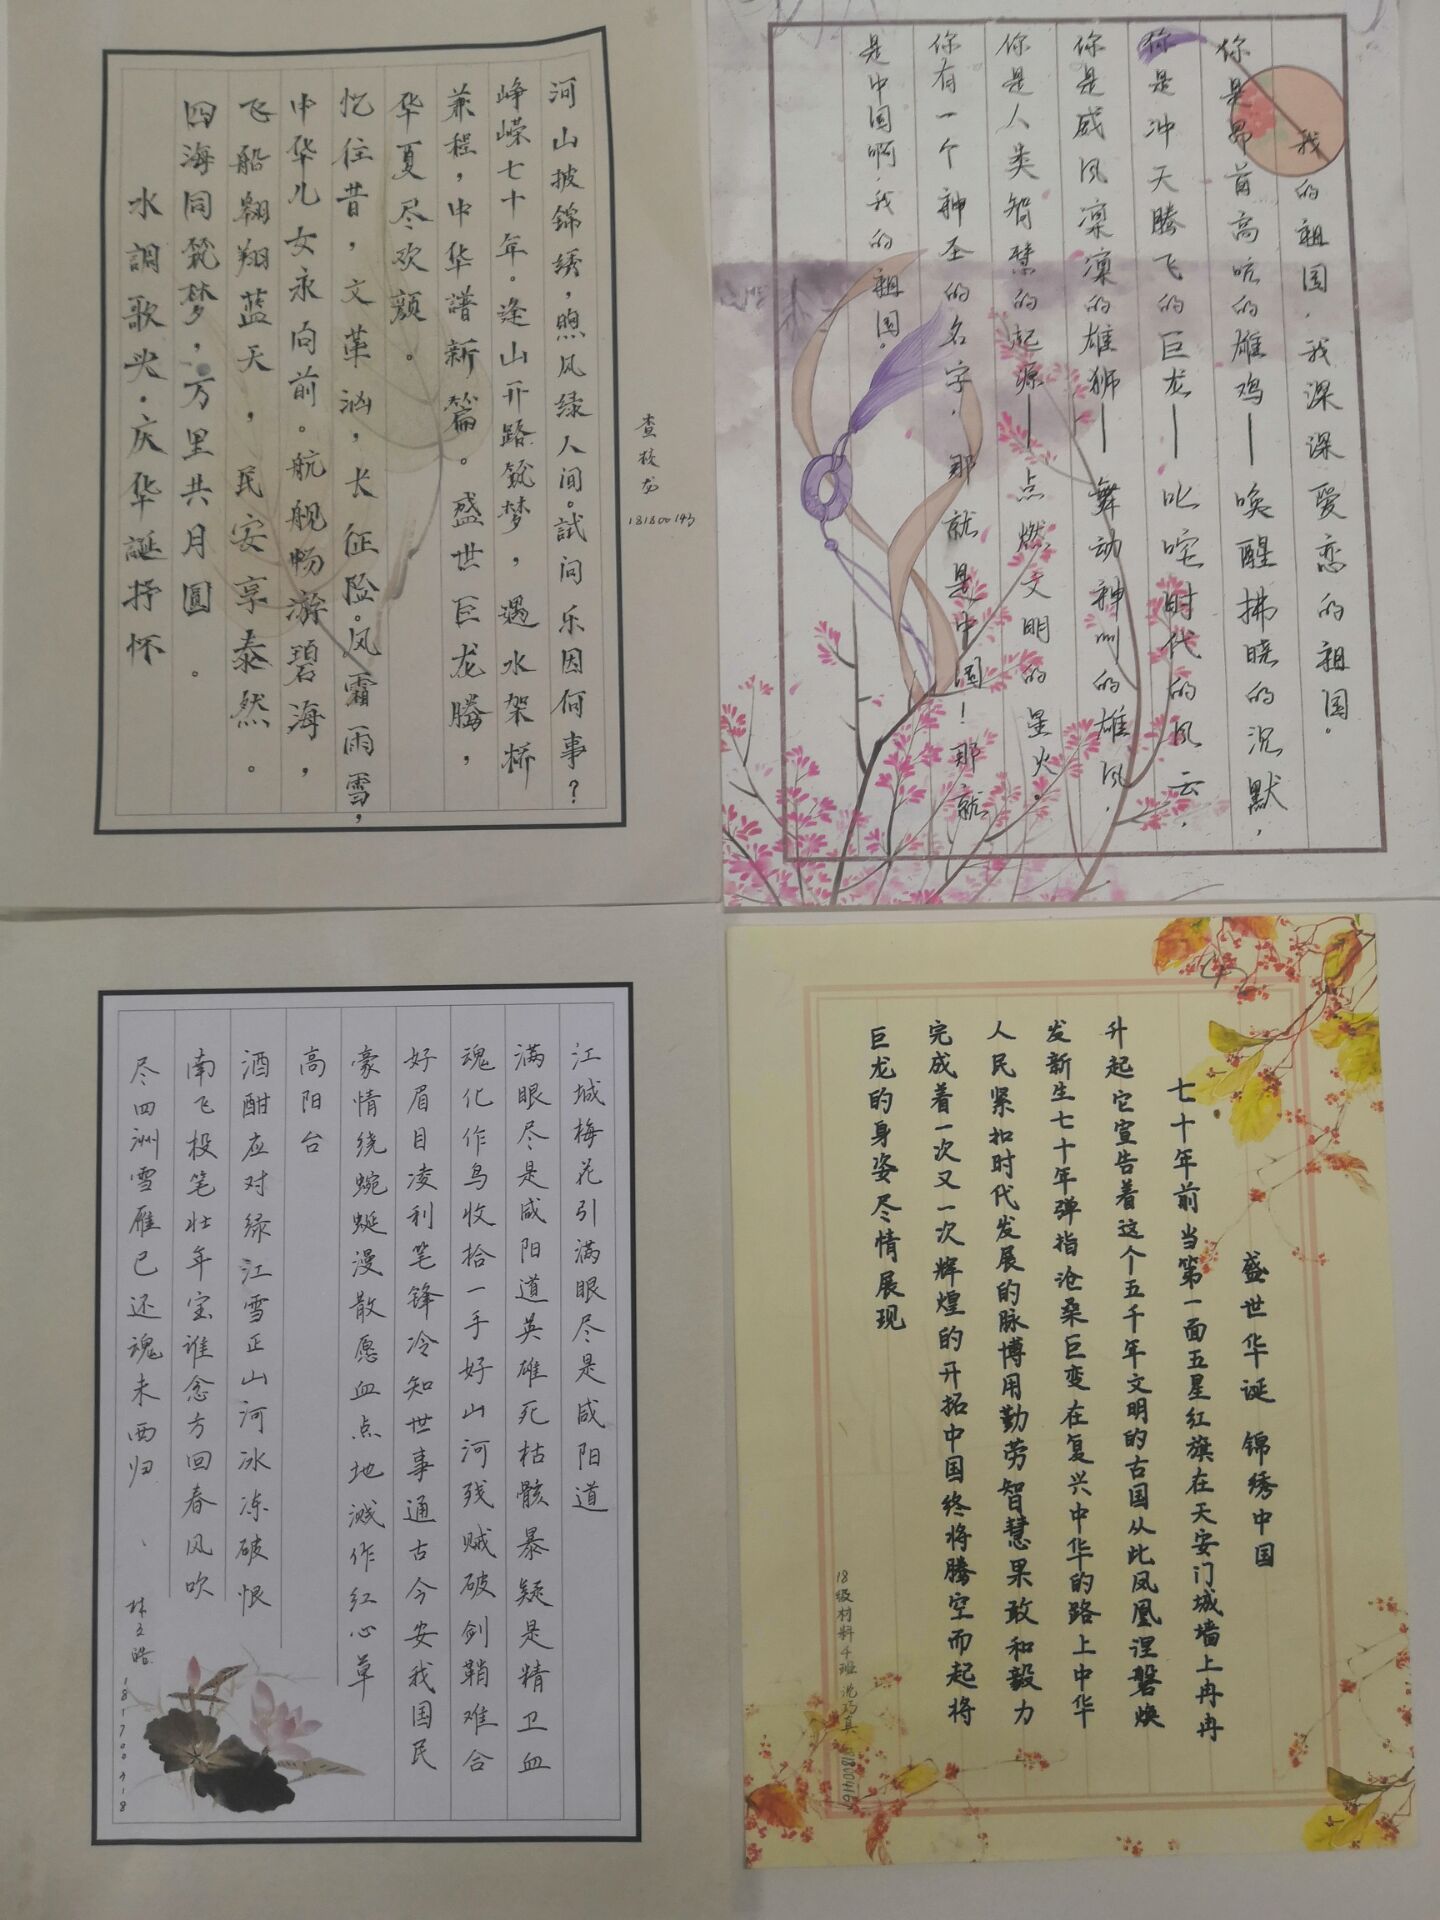 河山披锦绣，煦风绿人间。試问乐因何事？
峥嵘七十年。逢山开路筑梦，遇水架桥
兼程，中华谱新篇。盛世巨龙騰，
华夏尽欢颜。
忆往昔，文革汹，长征险。风霜雨雪，
中华儿女永向前。航舰畅游碧海，
飞船翱翔蓝天，民安享泰然。
四海同筑梦，万里共月圆。
水調歌头·庆华誕抒怀
查校龙
181800143
我的祖国，我深深爱恋的祖国。
你是昂首高吭的雄鸡——唤醒拂晓的沉默，
你是冲天腾飞的巨龙——叱咤时代的风云，
你是威风凛凛的雄狮——舞动神州的雄风，
你是人类智慧的起源——点燃文明的星火。
你有一个神圣的名字，那就是中国！那就
是中国啊，我的祖国。
江城梅花引满眼尽是咸阳道
满眼尽是咸阳道英雄死枯骸暴疑是精卫血
魂化作鸟收拾一手好山河残贼破剑鞘难合
好眉目凌利笔锋冷知世事通古今安我国民
豪情绕蜿蜒漫散愿血点地溅作红心草
高阳台
酒酣应对绿江雪正山河冰冻破恨
南飞投笔壮年宝谁念方回春风吹
尽四洲雪雁已还魂未西归
181700418
盛世华诞 锦绣中国
七十年前当第一面五星红旗在天安门城墙上冉冉
升起它宣告着这个五千年文明的古国从此凤凰涅磐焕
发新生七十年弹指沧桑巨变在复兴中华的路上中华
人民紧扣时代发展的脉博用勤劳智慧果敢和毅力
完成着一次又一次辉煌的开拓中国终将腾空而起将
巨龙的身姿尽情展现
18级材料4班 沈巧真